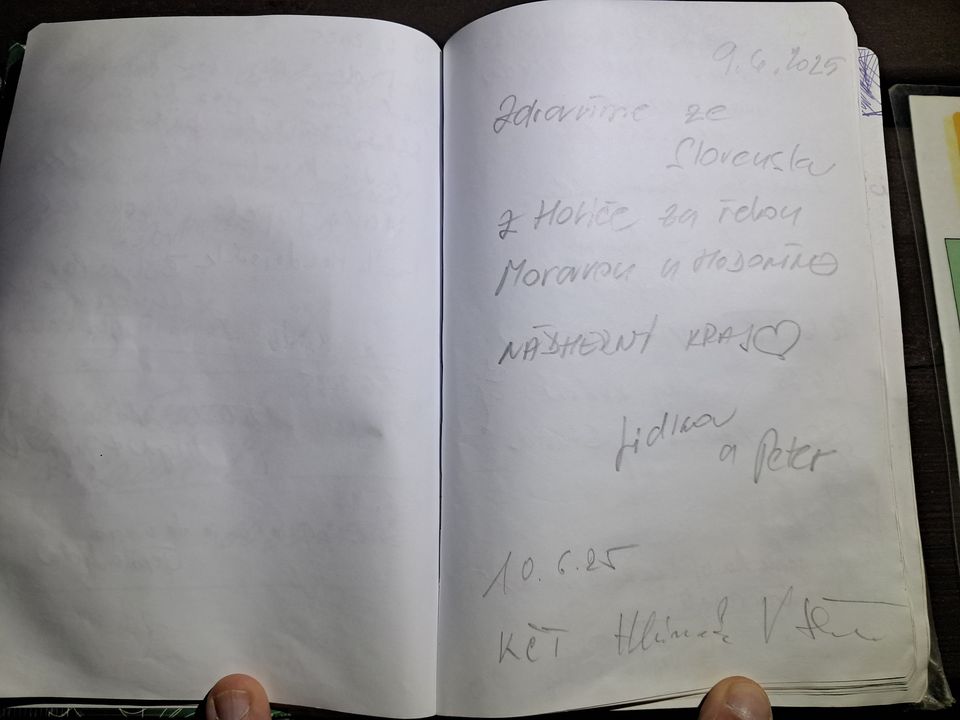 9.6.2025
Zdravíme ze
Slovenska
z Holíče za řekou
Moravou u HODONÍNA
NÁDHERNÝ KRAJ♡
Lidka
a Peter
10.6.25
KČT